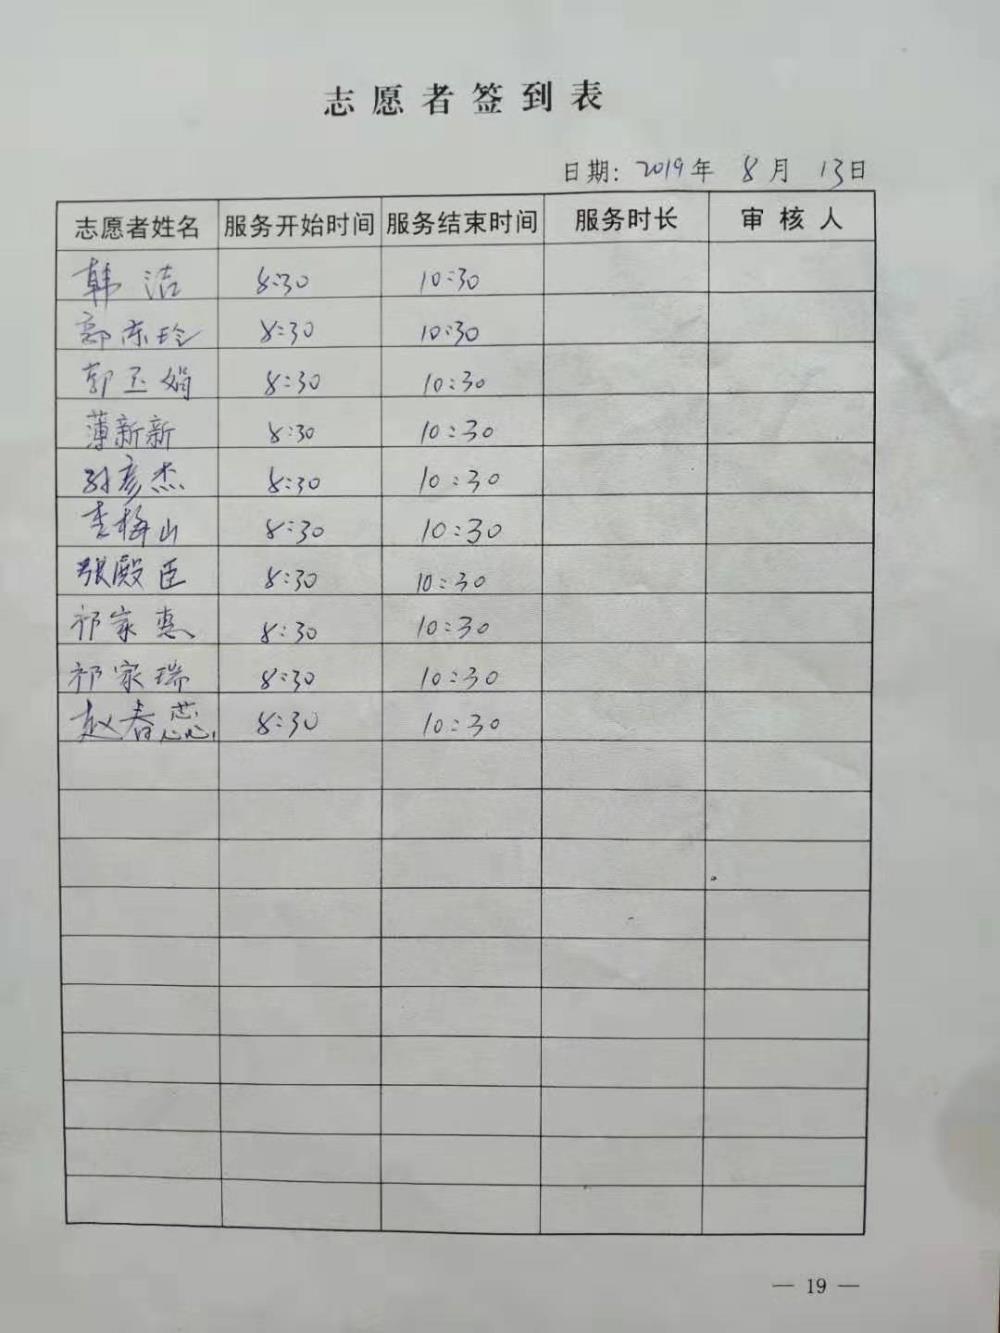 志愿者签到表
日期: 2019年 8月 13日
志愿者姓名 服务开始时间 服务结束时间 服务时长 审核人
韩洁 8:30 10:30
郭东玲 8:30 10:30
郭玉娟 8:30 10:30
薄新新 8:30 10:30
孙彦杰 8:30 10:30
李梅山 8:30 10:30
张殿臣 8:30 10:30
祁家惠 8:30 10:30
祁家瑞 8:30 10:30
赵春蕊 8:30 10:30
— 19 —